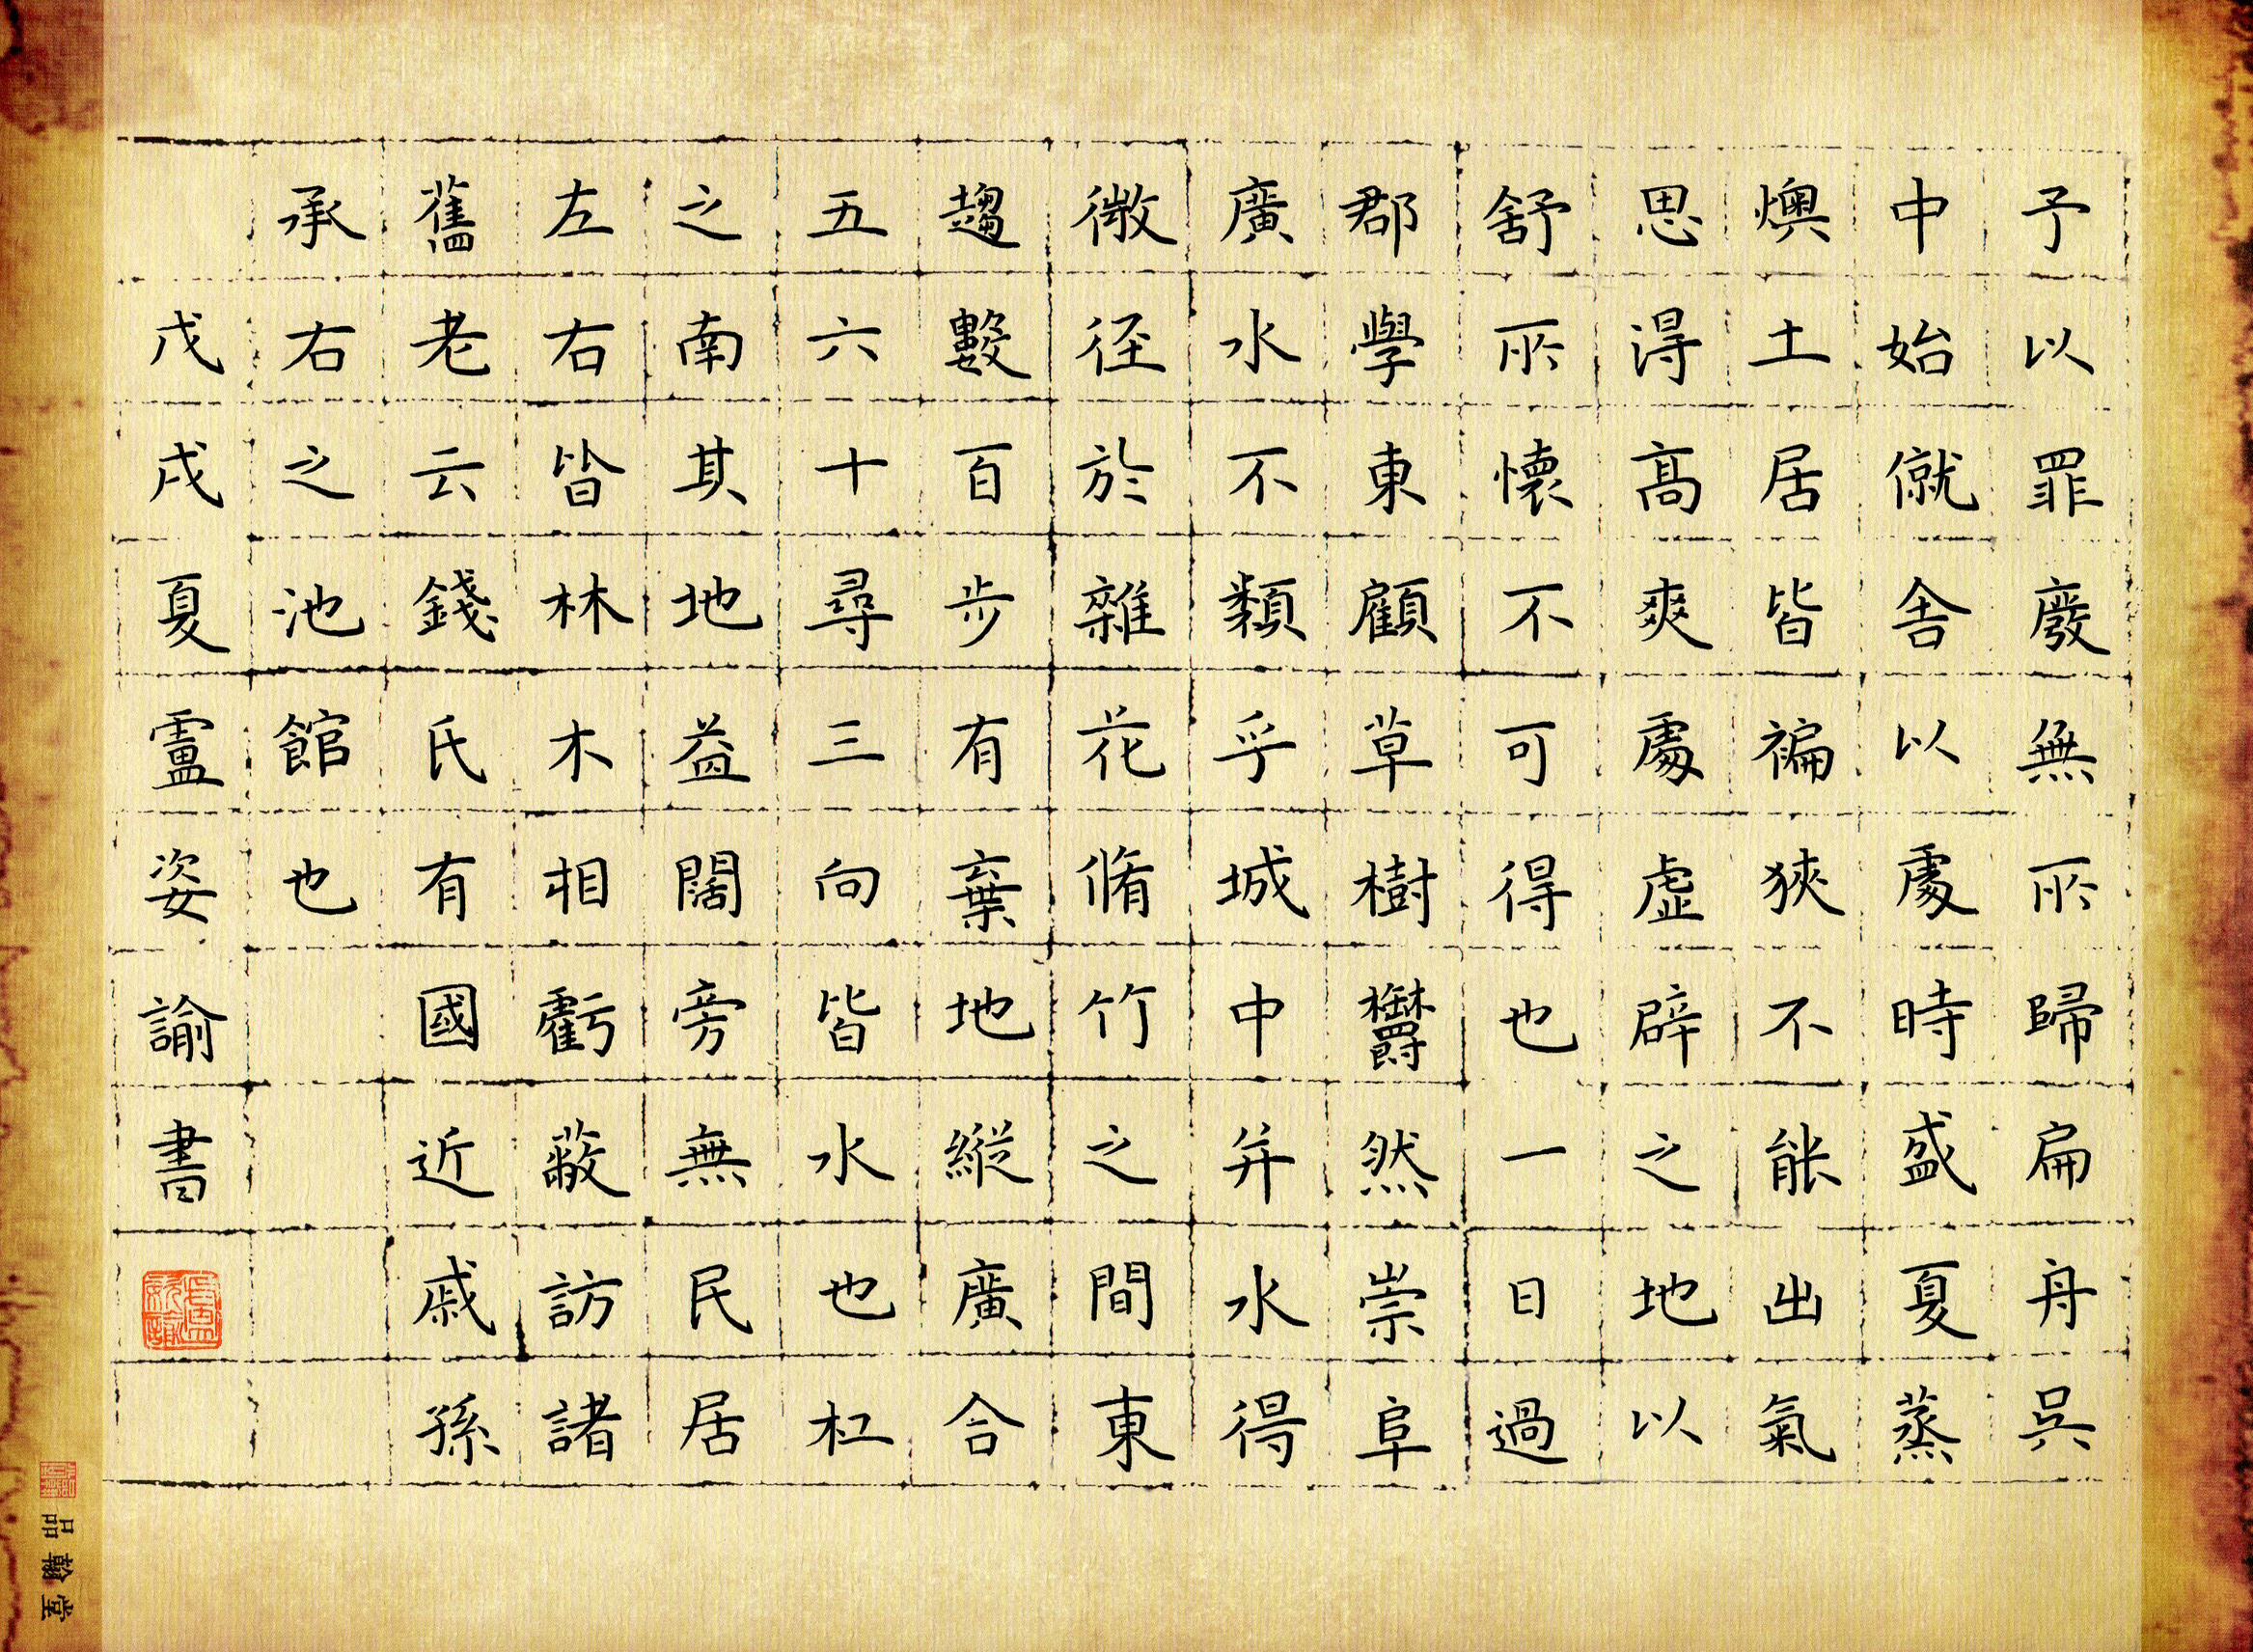 予以罪廢無所歸扁舟吳
中始僦舍以處時盛夏蒸
燠土居皆褊狹不能出氣
思得高爽處虛辟之地以
舒所懷不可得也一日過
郡學東顧草樹鬱然崇阜
廣水不類乎城中并水得
微徑於雜花脩竹之間東
趨數百步有棄地縱廣合
五六十尋三向皆水也杠
之南其地益闊旁無民居
左右皆林木相虧蔽訪諸
舊老云錢氏有國近戚孫
承右之池館也
戊戌夏盧姿諭書
品翰堂